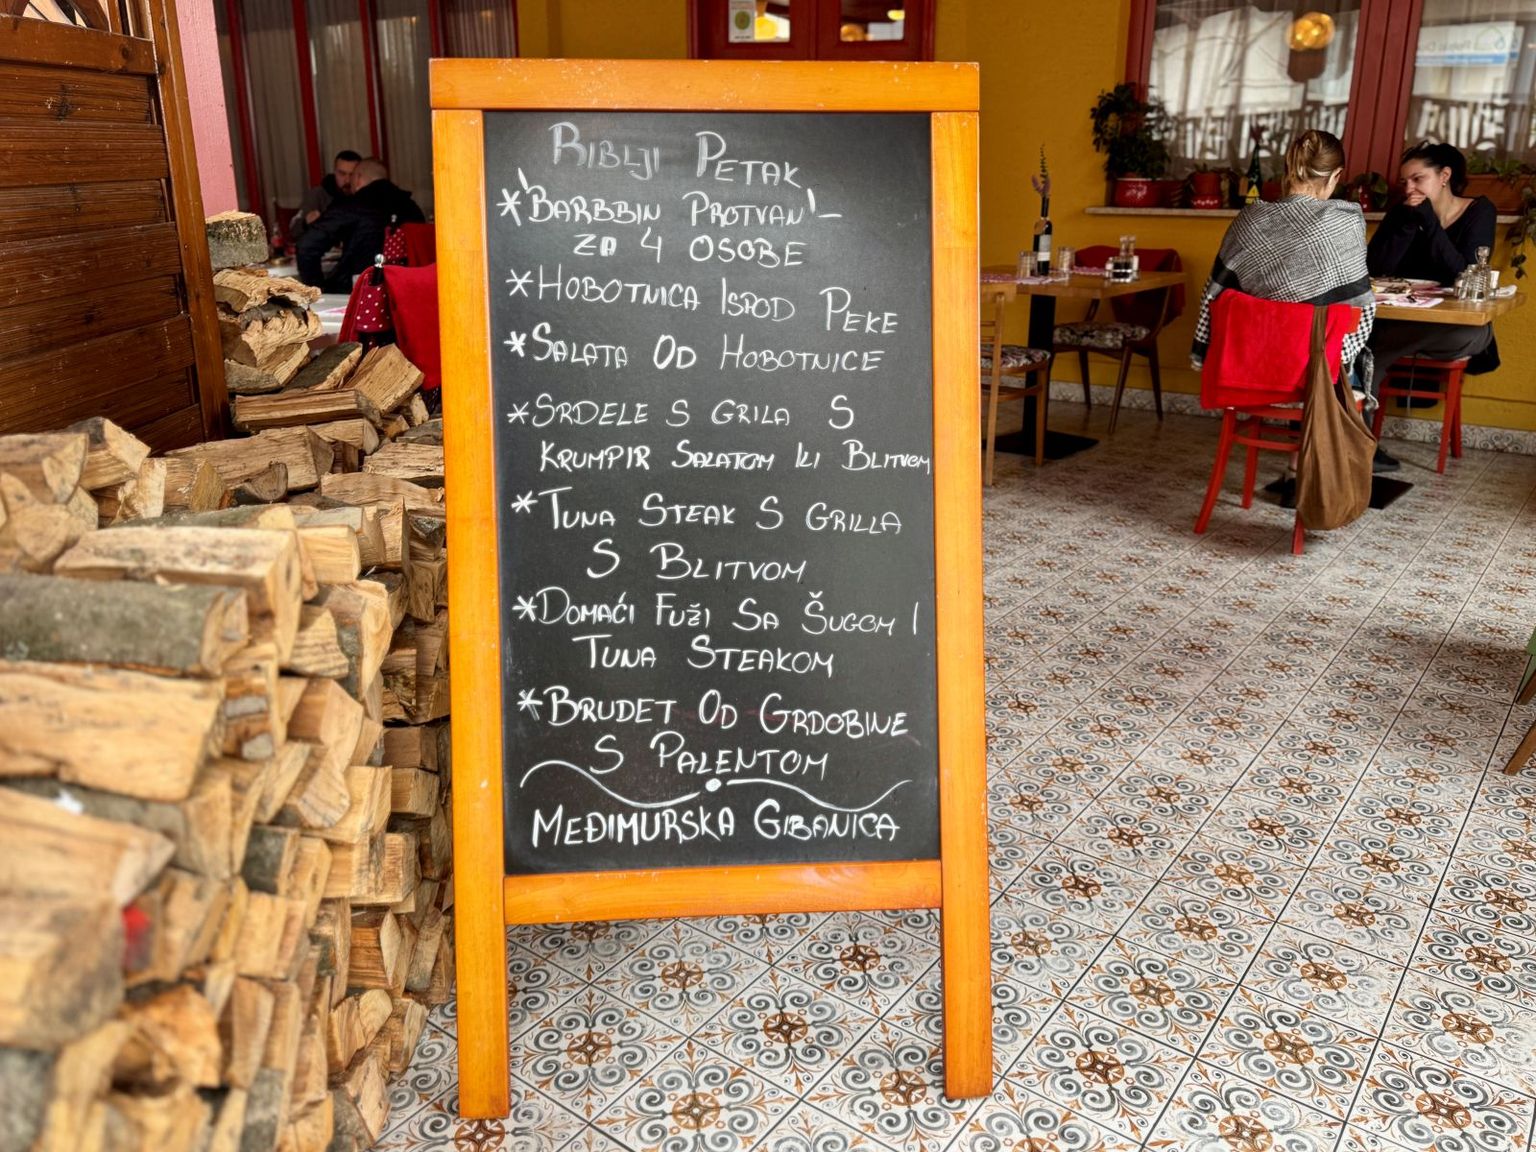 Riblji Petak
* 'Barbbin Protvan' –
za 4 osobe
* Hobotnica Ispod Peke
* Salata Od Hobotnice
* Srdele s Grila s
Krumpir Salatom ili Blitvom
* Tuna Steak s Grilla
s Blitvom
* Domaći Fuži Sa Šugom i
Tuna Steakom
* Brudet Od Grdobine
s Palentom
Međimurska Gibanica